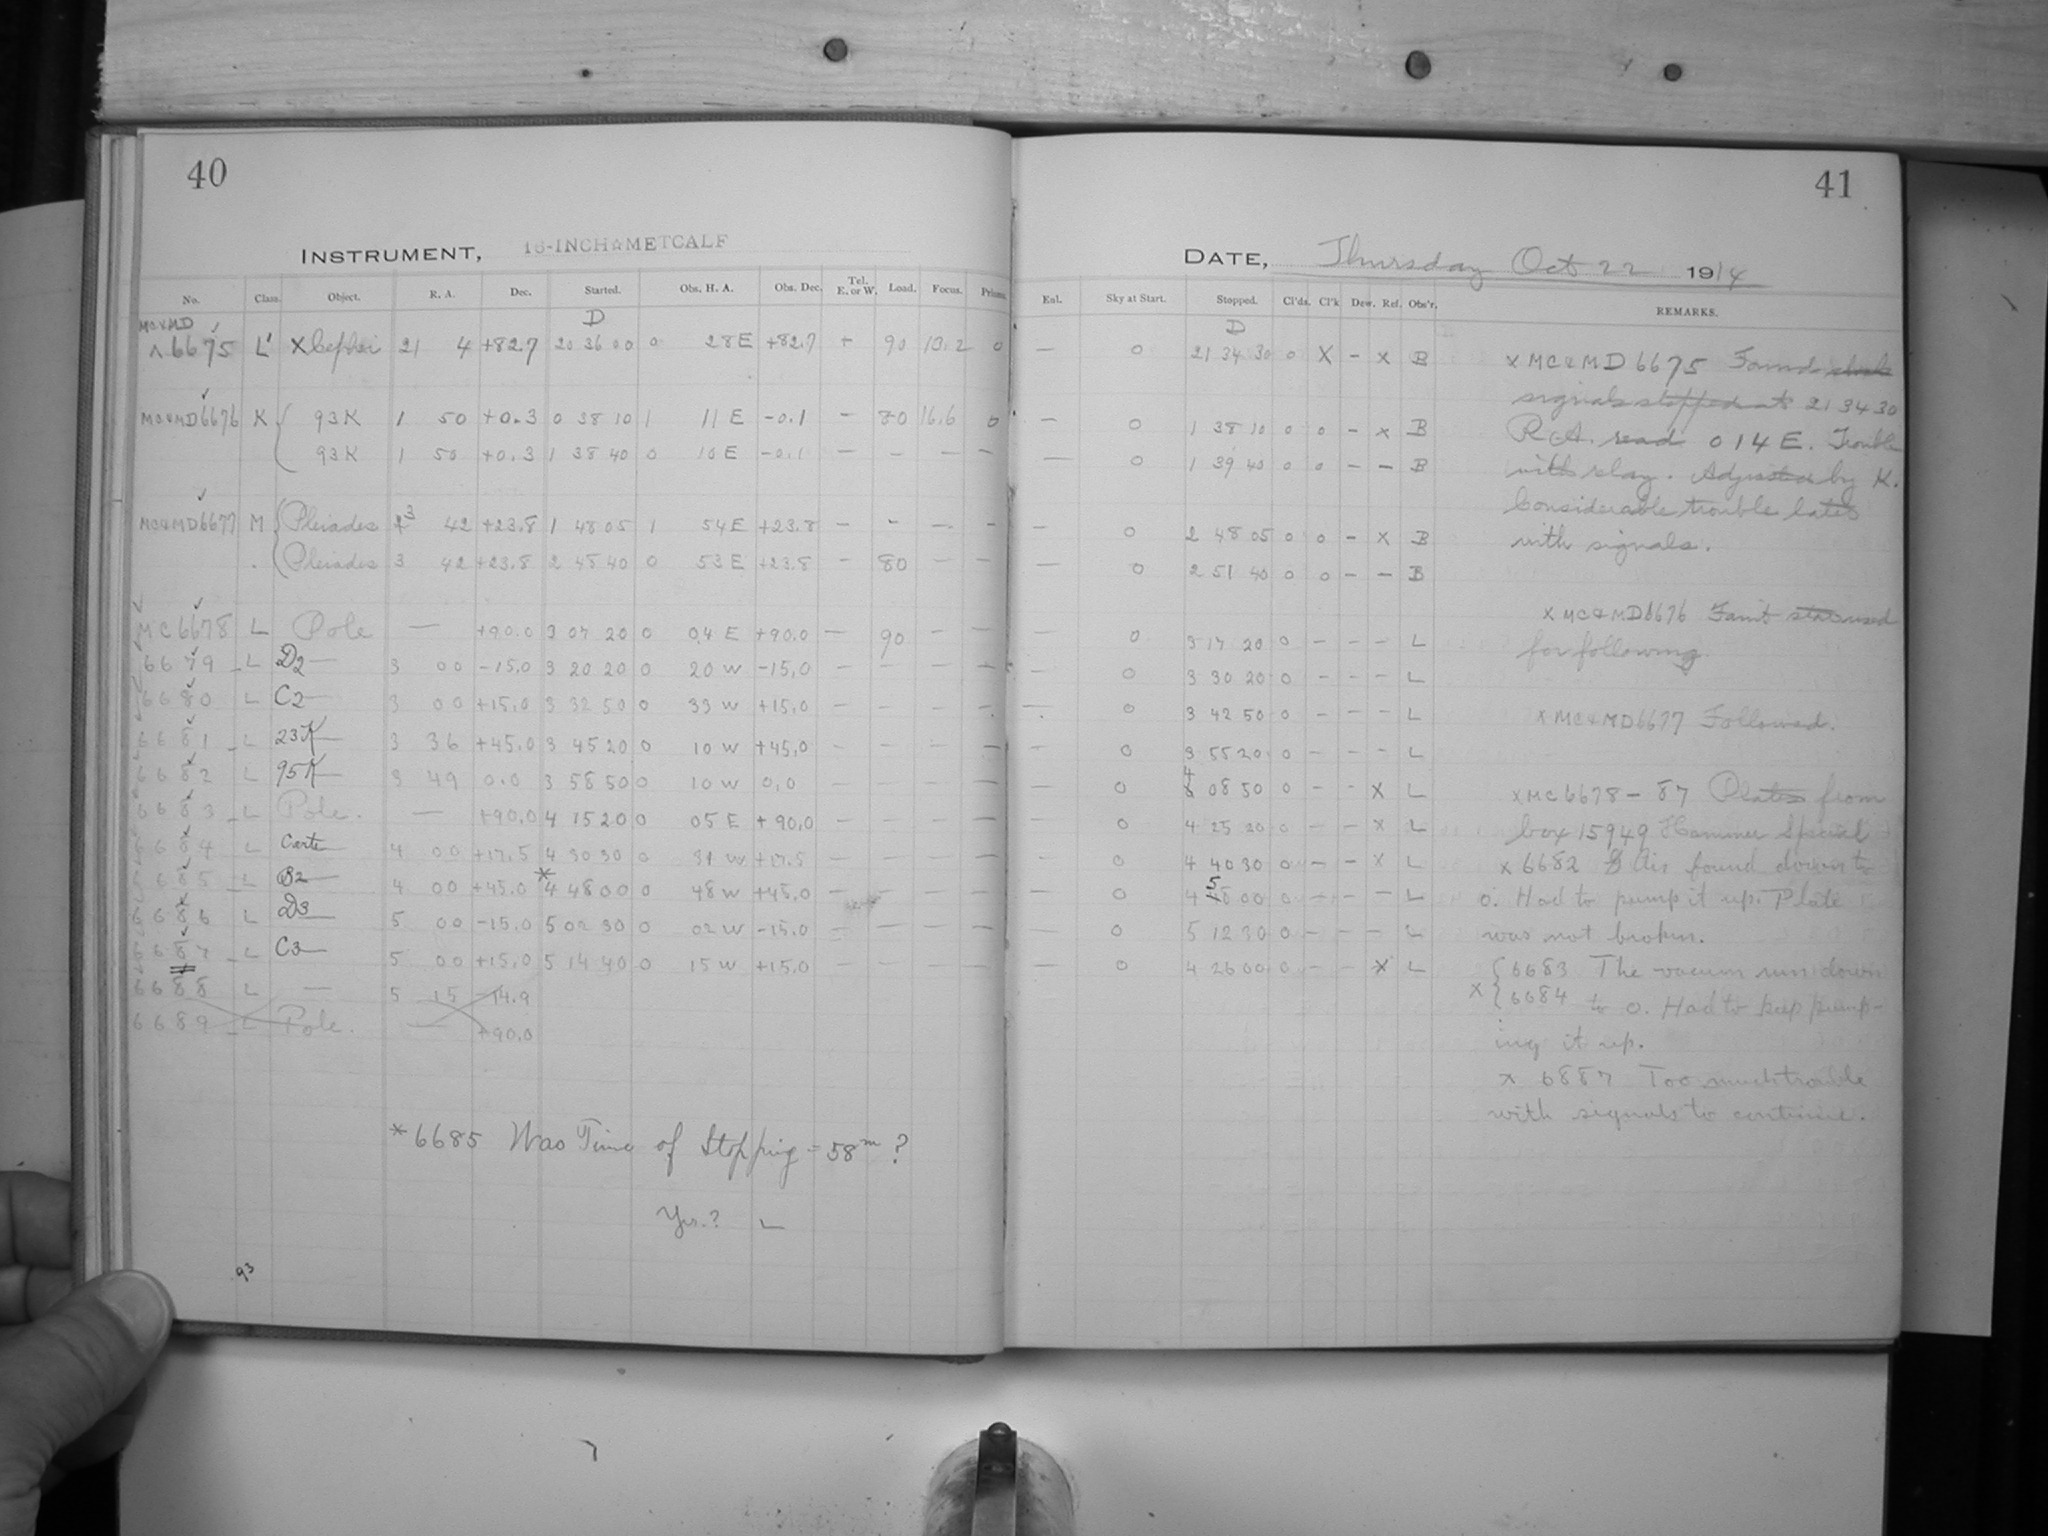 40
INSTRUMENT, 16-INCH☆METCALF
No. Class. Object. R. A. Dec. Started. Obs. H. A. Obs. Dec. Tel. E. or W. Load. Focus.
MC&MD D
6675 L' X Cephei 21 4 +82.7 20 36 00 0 28 E +82.7 + 90 13.2 0
MC&MD6676 K 93K 1 50 +0.3 0 38 10 1 11 E -0.1 - 80 16.6 0
93K 1 50 +0.3 1 38 40 0 10 E -0.1 - - - -
MC&MD6677 M Pleiades 3 42 +23.8 1 48 05 1 54 E +23.8 - - - -
Pleiades 3 42 +23.8 2 48 40 0 53 E +23.8 - 80 - -
MC6678 L Pole — +90.0 3 07 20 0 04 E +90.0 - 90 - -
6679 L D2 3 00 -15.0 3 20 20 0 20 W -15.0 - - - -
6680 L C2 3 00 +15.0 3 32 50 0 33 W +15.0 - - - -
6681 L 23K 3 36 +45.0 3 45 20 0 10 W +45.0 - - - -
6682 L 95K 3 49 0.0 3 58 50 0 10 W 0.0 - - - -
6683 L Pole. — +90.0 4 15 20 0 05 E +90.0 - - - -
6684 L 4 00 +17.5 4 30 30 0 31 W +17.5 - - - -
6685 L B2 4 00 +45.0 *4 48 00 0 48 W +45.0 - - - -
6686 L D3 5 00 -15.0 5 02 30 0 02 W -15.0 - - - -
6687 L C3 5 00 +15.0 5 14 40 0 15 W +15.0 - - - -
6688 L — 5 15 -14.9
6689 L Pole. — +90.0
*6685 Was Time of Stopping = 58m ?
Yes.? L
93
41
DATE, Thursday Oct 22 1914
Enl. Sky at Start. Stopped. Cl'ds. Cl'k Dew. Ref. Obs'r. REMARKS.
D
— 0 21 34 30 0 X - x B
— 0 1 38 10 0 0 - x B
— 0 1 39 40 0 0 - - B
— 0 2 48 05 0 0 - x B
— 0 2 51 40 0 0 - - B
— 0 3 17 20 0 - - - L
— 0 3 30 20 0 - - - L
— 0 3 42 50 0 - - - L
— 0 3 55 20 0 - - - L
— 0 4 08 50 0 - - x L
— 0 4 25 20 0 - - x L
— 0 4 40 30 0 - - x L
— 0 4 58 00 0 - - - L
— 0 5 12 30 0 - - - L
— 0 4 26 00 0 - - x L
x MC&MD 6675 Found clock
signals stopped at 21 34 30
R.A. read 0 14 E. Trouble
with relay. Adjusted by K.
Considerable trouble later
with signals.
x MC&MD6676 Faint star used
for following.
x MC&MD6677 Followed.
x MC6678 - 87 Plates from
box 15949 Hammer Special
x 6682 Air found down to
0. Had to pump it up. Plate
was not broken.
x { 6683 The vacuum run down
6684 to 0. Had to keep pump-
ing it up.
x 6687 Too much trouble
with signals to continue.